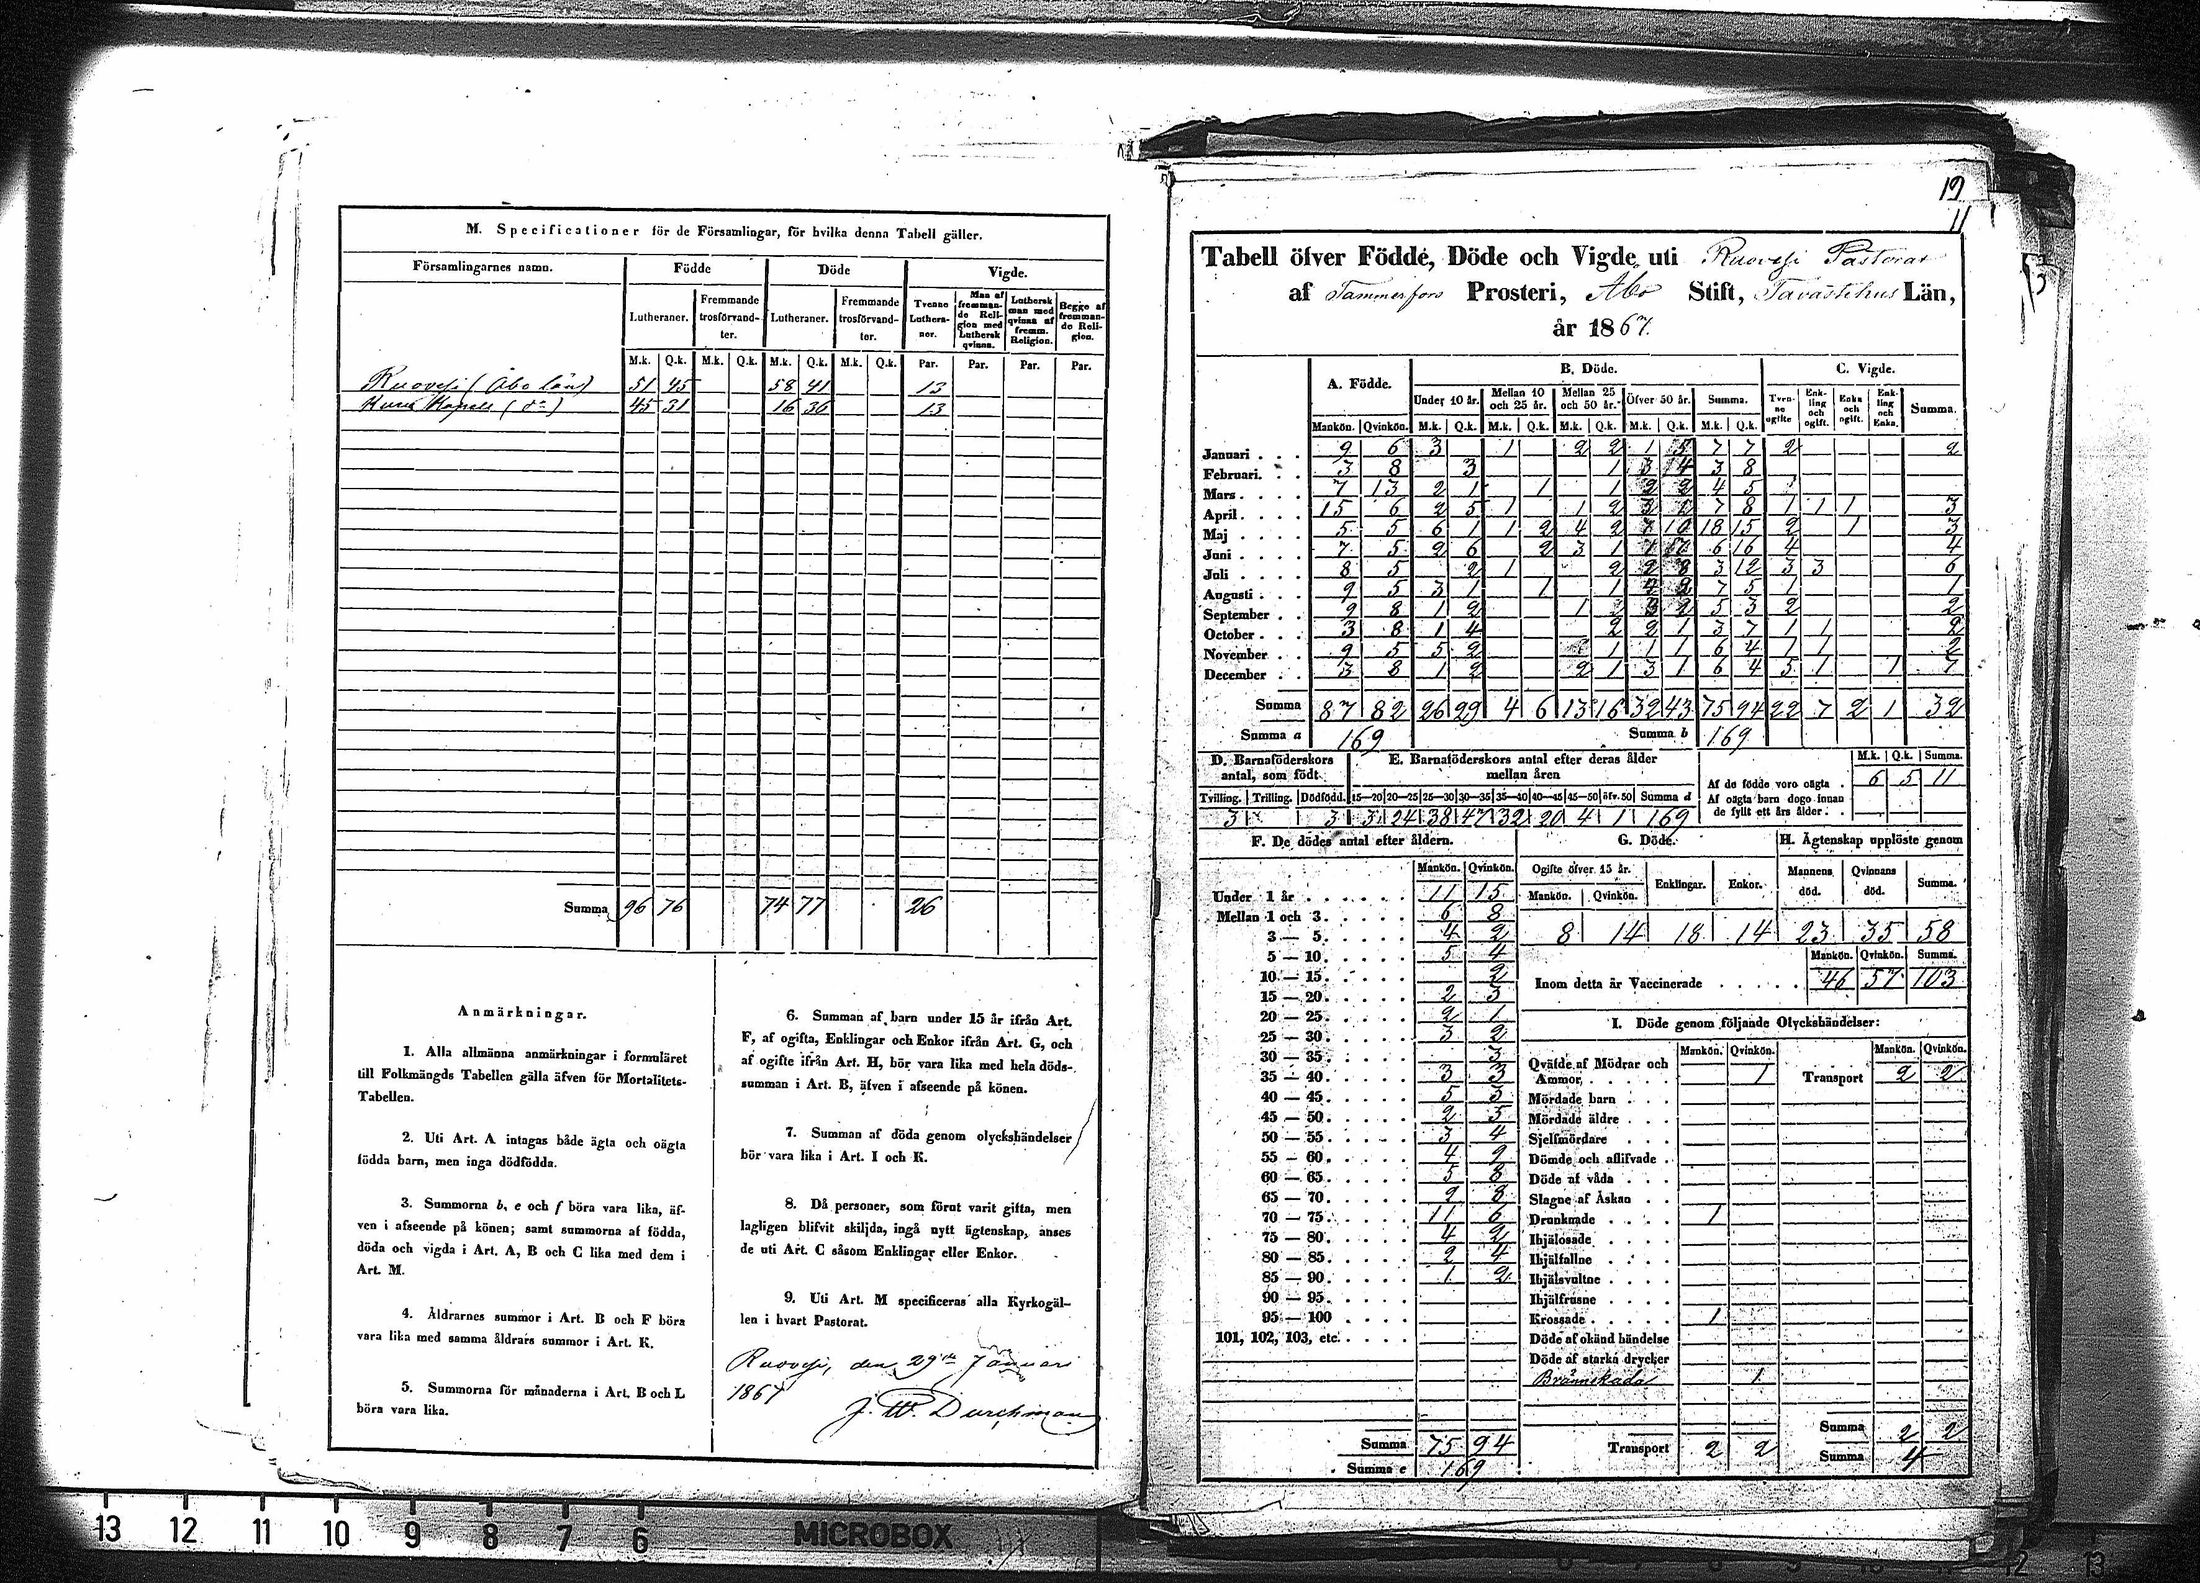 M. Specificationer för de Församlingar, för hvilka denna Tabell gäller.
Församlingarnes namn. Födde Döde Vigde.
Lutheraner. Fremmande trosförvandter. Lutheraner. Fremmande trosförvandter. Tvenne Lutheraner. Man af fremmande Religion med Luthersk qvinna. Luthersk man med qvinna af fremm. Religion. Begge af fremmande Religion.
M.k. Q.k. M.k. Q.k. M.k. Q.k. M.k. Q.k. Par. Par. Par. Par.
Ruovesi (Åbo län) 51 45 58 41 13
Kapell 45 31 16 36 13
Summa 96 76 74 77 26
Anmärkningar.
1. Alla allmänna anmärkningar i formuläret
till Folkmängds Tabellen gälla äfven för Mortalitets-
Tabellen.
2. Uti Art. A intagas både ägta och oägta
födda barn, men inga dödfödda.
3. Summorna b, e och f böra vara lika, äf-
ven i afseende på könen; samt summorna af födda,
döda och vigda i Art. A, B och C lika med dem i
Art. M.
4. Åldrarnes summor i Art. B och F böra
vara lika med samma åldrars summor i Art. K.
5. Summorna för månaderna i Art. B och L
böra vara lika.
6. Summan af barn under 15 år ifrån Art.
F, af ogifta, Enklingar och Enkor ifrån Art. G, och
af ogifte ifrån Art. H, bör vara lika med hela döds-
summan i Art. B, äfven i afseende på könen.
7. Summan af döda genom olyckshändelser
bör vara lika i Art. I och K.
8. Då personer, som förut varit gifta, men
lagligen blifvit skiljda, ingå nytt ägtenskap, anses
de uti Art. C såsom Enklingar eller Enkor.
9. Uti Art. M specificeras alla Kyrkogäl-
len i hvart Pastorat.
Ruovesi, den 29de Januari
1867
J. W. Durchman
19
11
Tabell öfver Födde, Döde och Vigde uti Ruovesi Pastorat
af Tammerfors Prosteri, Åbo Stift, Tavastehus Län,
år 1867.
A. Födde. B. Döde. C. Vigde.
Under 10 år. Mellan 10 och 25 år. Mellan 25 och 50 år. Öfver 50 år. Summa. Tvenne ogifte Enkling och ogift. Enka och ogift. Enkling och Enka. Summa.
Mankön. Qvinkön. M.k. Q.k. M.k. Q.k. M.k. Q.k. M.k. Q.k. M.k. Q.k.
Januari 9 6 3 1 2 2 1 5 7 7 2 2
Februari. 3 8 3 1 3 4 3 8
Mars 7 13 2 1 1 1 2 2 4 5
April 15 6 2 5 1 1 2 3 1 7 8 1 1 1 3
Maj 5 5 6 1 1 2 4 2 7 10 18 15 2 1 3
Juni 7 5 2 6 2 3 1 1 7 6 16 4 4
Juli 8 5 2 1 2 2 8 3 12 3 3 6
Augusti 9 5 3 1 1 1 2 7 5 1 1
September 9 8 1 2 1 2 3 2 5 3 2 2
October 3 8 1 4 2 2 1 3 7 1 1 2
November 9 5 5 2 1 1 1 6 4 1 1 2
December 3 8 1 2 2 1 3 1 6 4 5 1 1 7
Summa 87 82 26 29 4 6 13 16 32 43 75 94 22 7 2 1 32
Summa a 169 Summa b 169
D. Barnaföderskors antal, som födt.
Tvilling. Trilling. Dödfödd.
3 3
E. Barnaföderskors antal efter deras ålder mellan åren
15—20 20—25 25—30 30—35 35—40 40—45 45—50 öfv. 50 Summa d
3 24 38 47 32 20 4 1 169
M.k. Q.k. Summa.
Af de födde voro oägta 6 5 11
Af oägta barn dogo innan de fyllt ett års ålder
F. De dödes antal efter åldern.
Mankön. Qvinkön.
Under 1 år 11 15
Mellan 1 och 3 6 8
3 — 5 4 2
5 — 10 5 4
10 — 15 2
15 — 20 2 3
20 — 25 2 1
25 — 30 3 2
30 — 35 3
35 — 40 3 3
40 — 45 5 3
45 — 50 2 5
50 — 55 3 4
55 — 60 4 9
60 — 65 5 8
65 — 70 2 8
70 — 75 11 6
75 — 80 4 2
80 — 85 2 4
85 — 90 1 2
90 — 95
95 — 100
101, 102, 103, etc.
Summa 75 94
Summa e 169
G. Döde.
Ogifte öfver 15 år. Enklingar. Enkor.
Mankön. Qvinkön.
8 14 18 14
H. Ägtenskap upplöste genom
Mannens död. Qvinnans död. Summa.
23 35 58
Mankön. Qvinkön. Summa.
Inom detta år Vaccinerade 46 57 103
I. Döde genom följande Olyckshändelser:
Mankön. Qvinkön. Mankön. Qvinkön.
Qväfde af Mödrar och Ammor 1 Transport 2 2
Mördade barn
Mördade äldre
Sjelfmördare
Dömde och aflifvade
Döde af våda
Slagne af Åskan
Drunknade 1
Ihjälosade
Ihjälfallne
Ihjälsvultne
Ihjälfrusne
Krossade 1
Döde af okänd händelse
Döde af starka drycker
Brännskada 1
Summa 2 2
Transport 2 2 Summa 4
13 12 11 10 9 8 7 6
MICROBOX